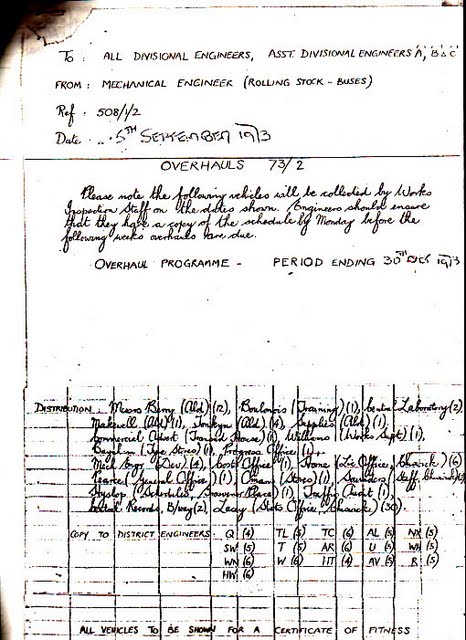 To : ALL DIVISIONAL ENGINEERS, ASST. DIVISIONAL ENGINEERS A, B & C
FROM : MECHANICAL ENGINEER (ROLLING STOCK - BUSES)
Ref : 508/1/2
Date 5TH SEPTEMBER 1973
OVERHAULS 73/2
Please note the following vehicles will be collected by Works
Inspection Staff on the dates shown. Engineers should ensure
that they have a copy of the schedule by Monday before the
following weeks overhauls are due.
OVERHAUL PROGRAMME - PERIOD ENDING 30TH DEC 1973
DISTRIBUTION : Messrs Berry (Ald) (12), (Training) (1), Central Laboratory (2)
Maxwell (Ald) (1), (Ald) (4), Supplies (Ald) (1),
Commercial Advert (1), Williams (Works Supt) (1),
(Type Stores) (1), Progress Office (1),
Mech Engr (Dev) (4), Cost Office (1), Stone (Lic Office, Chiswick) (6)
Pearce (General Office) (1), (Stores) (1), Saunders
(Schedules, Place) (1), Traffic Audit (1),
Records, B/way (2), Lacey (Stats Office, Chiswick) (30).
COPY TO DISTRICT ENGINEERS. Q (4) TL (5) TC (6) AL (5) NX (5)
SW (5) T (5) AR (6) U (5) WH (5)
WN (6) W (6) HT (4) AV (5) R (5)
HW (6)
ALL VEHICLES TO BE SHOWN FOR A CERTIFICATE OF FITNESS